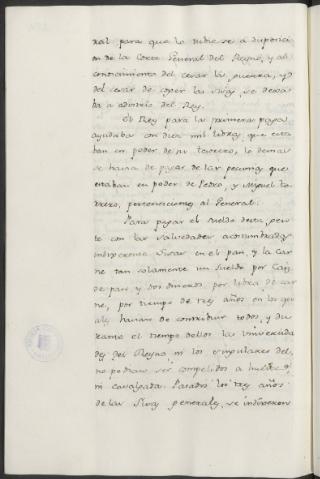 ral para que lo nibie se à disposici
on de la Corte General del Reyno, y al
conocimiento del cesar la guerra, y o
del cesar de coger las sisas, se dexa
ba a advitrio del Rey.
El Rey para las primeras pagas
ayudaba con diez mil libras, que esta
ban en poder de su tesorero, lo demas
se havia de pagar de las pecunias que
estaban en poder de Pedro, y Miguel
pertenecientes al General.
Para pagar el sueldo desta gen
te con las salvedades acostumbradas
impusieron sisas en el pan, y la car
ne tan solamente un sueldo por Caiz
de pan, y dos dineros, por libra de car
ne, por tiempo de tres años en los qu
ales havian de contribuir todos, y du
rante el tiempo dellos las Universida
des del Reyno, ni los singulares del,
no podian ser compelidos a hueste,
ni cavalgada. Pasados los tres años
de las sisas generales, se impusieron